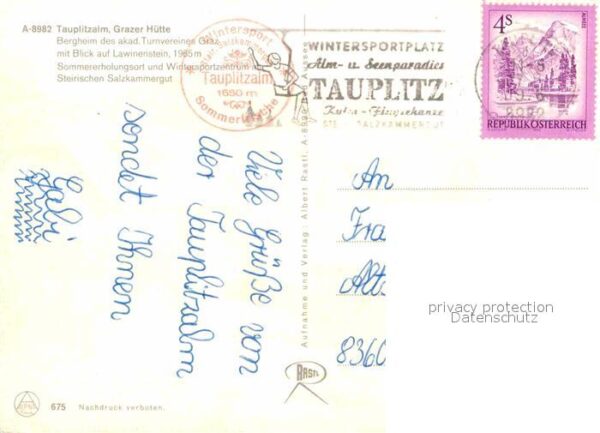 A-8982 Tauplitzalm, Grazer Hütte
Bergheim des akad. Turnvereines Graz
mit Blick auf Lawinenstein, 1965 m
Sommererholungsort und Wintersportzentrum im
Steirischen Salzkammergut
Wintersport
Tauplitzalm
1650 m
Sommerfrische
WINTERSPORTPLATZ
Alm- u. Seenparadies
TAUPLITZ
Kulm-Flugschanze
SALZKAMMERGUT
4S
REPUBLIK ÖSTERREICH
Viele Grüße von
der Tauplitzalm
sendet Ihnen
Gabi
Aufnahme und Verlag: Albert Rastl, A-8990 Bad Aussee
An
Fra
Alt
8360
privacy protection
Datenschutz
RASTL
675 Nachdruck verboten.